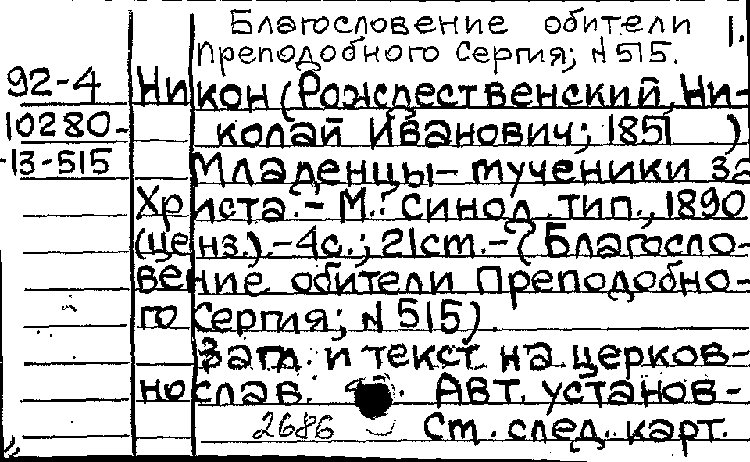 Благословение обители 1.
Преподобного Сергия; N 515.
92-4 Никон (Рождественский, Ни-
10280- колай Иванович; 1851 )
-13-515 Младенцы-мученики за
Христа.- М.: Синод. тип., 1890
(ценз.).-4с.; 21см.-(Благосло-
вение обители Преподобно-
го Сергия; N 515).
Загл. и текст на церков-
нослав. Авт. установ-
2686 См. след. карт.